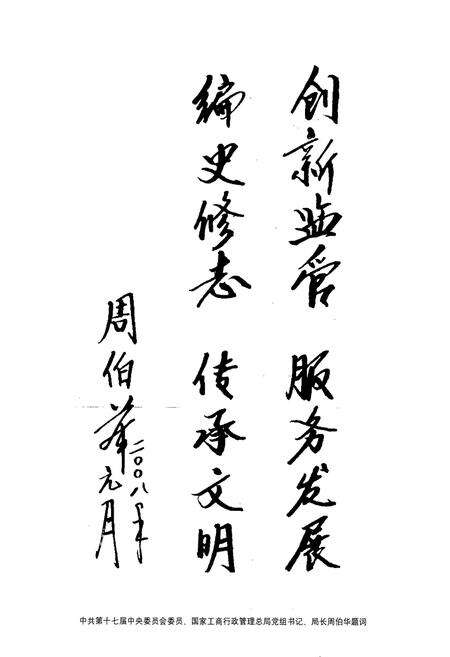 创新监管 服务发展
编史修志 传承文明
周伯华
二〇〇八年元月
中共第十七届中央委员会委员、国家工商行政管理总局党组书记、局长周伯华题词